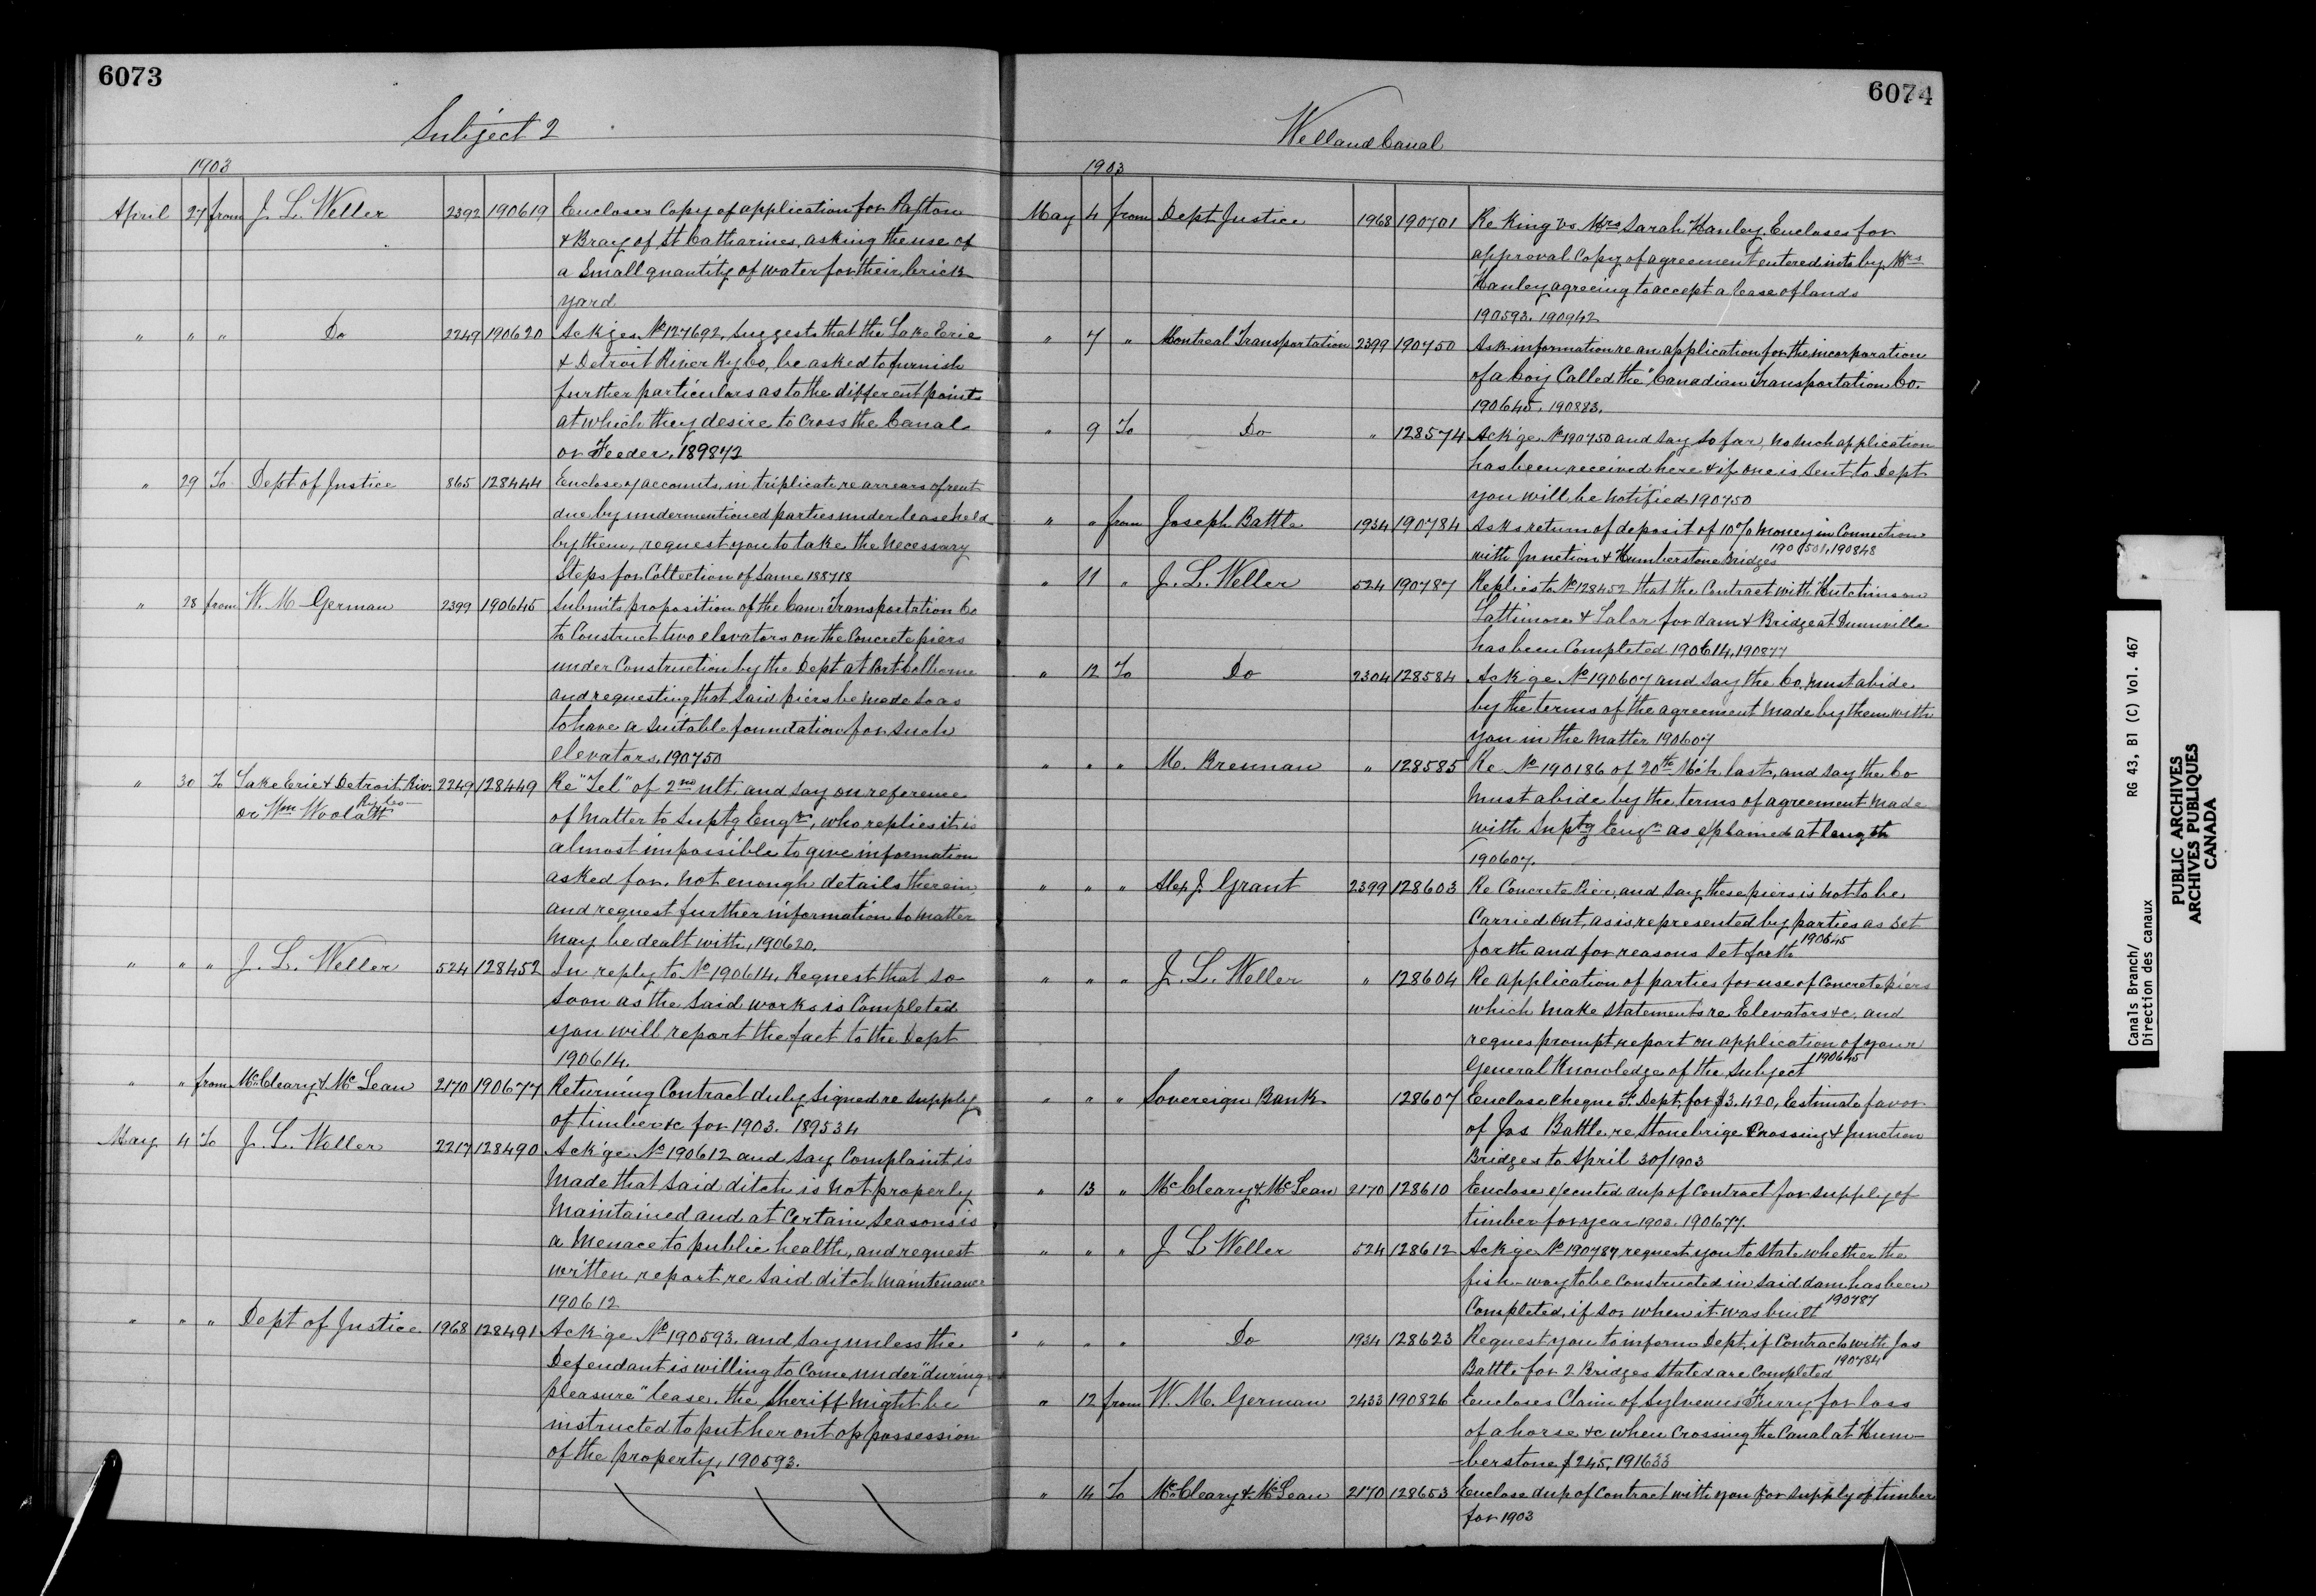 6073
Subject 2
1903
April 27 from J. L. Weller 2392 190619 Encloses Copy of application for Paxton
& Bray of St Catharines, asking the use of
a Small quantity of water for their brick
yard
" " " Do 2249 190620 Ackges. No 127692, suggests that the Lake Erie
& Detroit River Ry Co, be asked to furnish
further particulars as to the different points
at which they desire to Cross the Canal
or Feeder. 189872
" 29 To Dept of Justice 865 128444 Enclose 7 accounts, in triplicate, re arrears of rent
due by undermentioned parties under lease held
by them, request you to take the necessary
Steps for Collection of Same 188718
" 28 from W. M German 2399 190645 Submits proposition of the Can. Transportation Co
to Construct two elevators on the Concrete piers
under Construction by the Dept at Port Colborne
and requesting that said piers be made so as
to have a suitable foundation for such
elevators. 190750
" 30 To Lake Erie & Detroit Riv. 2249 128449 Re "Tel" of 2nd ult. and say on reference
Ry Co
or Wm Woolatt of Matter to Suptg Engr, who replies it is
almost impossible to give information
asked for, not enough details therein
and request further information so matter
may be dealt with, 190620.
" " " J. L. Weller 524 128452 In reply to No 190614. Request that so
soon as the said works is Completed
you will report the fact to the Dept
190614.
" " from McCleary & McLean 2170 190677 Returning Contract duly signed re supply
of timber &c for 1903. 189534
May 4 To J. L. Weller 2217 128490 Ack'ge No 190612 and say Complaint is
made that said ditch is not properly
Maintained and at Certain Seasons is
a Menace to public health, and request
written report re said ditch maintenance
190612
" " " Dept of Justice 1968 128491 Ack'ge No 190593. and say unless the
Defendant is willing to Come under "during
pleasure" lease, the Sheriff might be
instructed to put her out of possession
of the property, 190593.
6074
Welland Canal
1903
May 4 from Dept Justice 1968 190701 Re King vs Mrs Sarah Hanley. Encloses for
approval Copy of agreement entered into by Mrs
Hanley agreeing to accept a lease of lands
190593. 190942
" 7 " Montreal Transportation 2399 190750 Ask information re an application for the incorporation
of a Coy Called the "Canadian Transportation Co.
190645. 190883.
" 9 To Do " 128574 Ack'ge. No 190750 and say so far, no such application
has been received here & if one is sent to Dept
you will be notified 190750
" " from Joseph Battle 1934 190784 Asks return of deposit of 10% money in Connection
with Junction & Humberstone Bridges 190501, 190848
" 11 " J. L. Weller 524 190787 Replies to No 128452 that the Contract with Hutchinson
Lattimore & Lalor for dam & Bridge at Dunnville
has been Completed 190614, 190877
" 12 To Do 2304 128584 Ack'ge No 190607 and say the Co, must abide
by the terms of the agreement made by them with
you in the matter 190607
" " " M. Brennan " 128585 Re No 190186 of 20th Mch last, and say the Co
must abide by the terms of agreement made
with Suptg Engr as explained at length
190607.
" " " Alex J. Grant 2399 128603 Re Concrete Pier, and say these piers is not to be
Carried out, as is represented by parties as set
forth and for reasons set forth 190645
" " " J. L. Weller " 128604 Re Application of parties for use of Concrete piers
which make statements re Elevators &c. and
reques prompt report on application of your
General Knowledge of the Subject 190645
" " " Sovereign Bank 128607 Enclose Cheque F. Dept, for $3.420, Estimate favor
of Jas Battle, re Stonebrige Crossing & Junction
Bridges to April 30/1903
" 13 " McCleary & McLean 2170 128610 Enclose executed dup of Contract for supply of
timber for year 1903. 190677.
" " " J L Weller 524 128612 Ack'ge No 190787, request you to State whether the
fish-way to be Constructed in said dam has been
Completed, if so, when it was built 190787
" " " Do 1934 128623 Request you to inform Dept, if Contracts with Jas
Battle for 2 Bridges stated are Completed 190784
" 12 from W. M. German 2433 190826 Encloses Claim of Sylvenus Furry for loss
of a horse &c when Crossing the Canal at Hum-
-berstone $245, 191633
" 14 To McCleary & McLean 2170 128653 Enclose dup of Contract with you for supply of timber
for 1903
Canals Branch/ RG 43, B1 (C) Vol. 467
Direction des canaux
PUBLIC ARCHIVES
ARCHIVES PUBLIQUES
CANADA